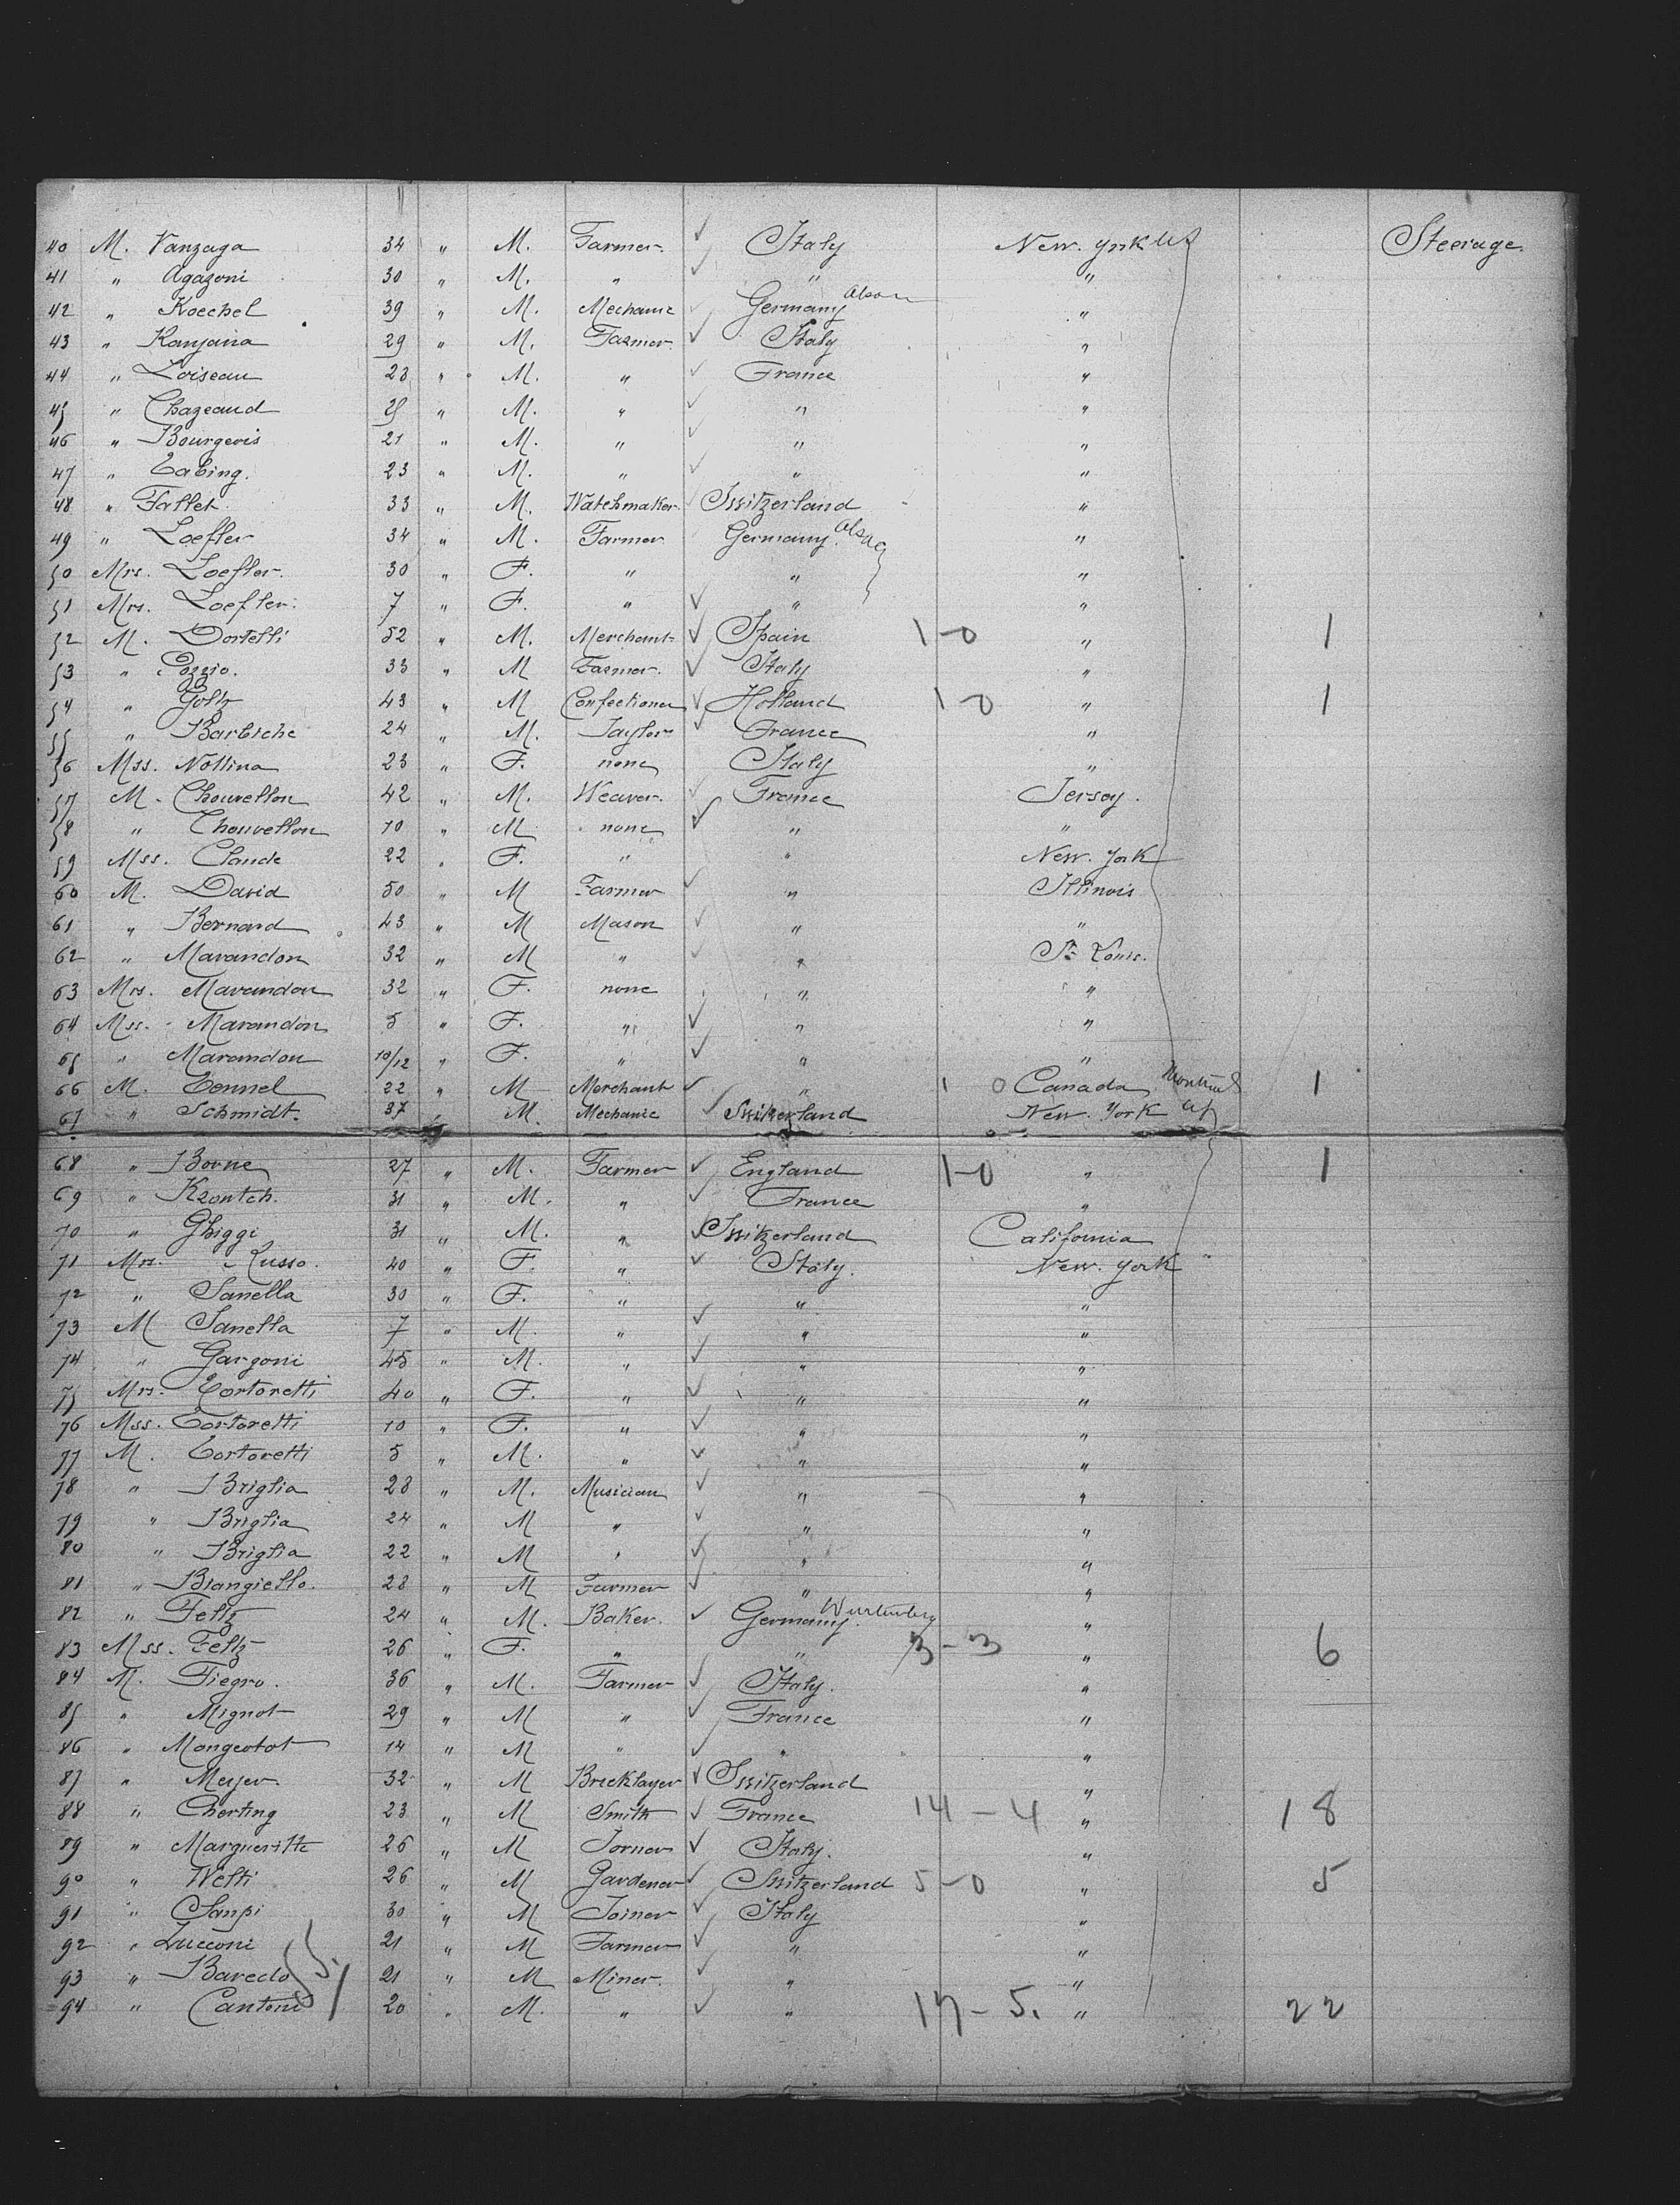 40 M. Vanzaga 34 " M. Farmer. Italy New. York US Steerage.
41 " Agazoni 30 " M. " " "
42 " Koechel 39 " M. Mechanic Germany "
43 " Kanjana 29 " M. Farmer. Italy "
44 " Loiseau 28 " M. " France "
45 " Chazeaud 25 " M. " " "
46 " Bourgeois 21 " M. " " "
47 " Tabing. 23 " M. " " "
48 " Fallet. 33 " M. Watchmaker Switzerland "
49 " Loefler 34 " M. Farmer Germany. Alsac "
50 Mrs. Loefler. 30 " F. " " "
51 Mrs. Loefler. 7 " F. " " "
52 M. Dortelli 52 " M. Merchant Spain 1-0 " 1
53 " Pozzio. 33 " M Farmer. Italy "
54 " Goltz 43 " M Confectioner Holland 1-0 " 1
55 " Barbiche 24 " M. Taylor France "
56 Mss. Nollina 23 " F. none Italy "
57 M. Chouvellon 42 " M. Weaver. France Jersey.
58 " Chouvellon 10 " M none " "
59 Mss. Claude 22 " F. " " New. York
60 M. David 50 " M Farmer " Illinois
61 " Bernard 43 " M Mason " "
62 " Marandon 32 " M " " St Louis.
63 Mrs. Marandon 32 " F. none " "
64 Mss. Marandon 5 " F. " " "
65 " Marandon 10/12 " F. " " "
66 M. Tonnel 22 " M Merchant " 1 0 Canada Montreal 1
67 " Schmidt. 37 " M. Mechanic Switzerland New. York
68 " Borne 27 " M. Farmer England 1-0 " 1
69 " Krontch. 31 " M. " France "
70 " Ghiggi 31 " M. " Switzerland California
71 Mrs. Russo. 40 " F. " Italy. New. York
72 " Sanella 30 " F. " " "
73 M Sanella 7 " M. " " "
74 " Gargoni 45 " M. " " "
75 Mrs. Tortoretti 40 " F. " " "
76 Mss. Tortoretti 10 " F. " " "
77 M. Tortoretti 5 " M. " " "
78 " Briglia 28 " M. Musician " "
79 " Briglia 24 " M " " "
80 " Briglia 22 " M " " "
81 " Biangiello. 28 " M Farmer " "
82 " Feltz 24 " M. Baker. Germany. Wurtenberg "
83 Mss. Feltz 26 " F. " " 3-3 " 6
84 M. Fiegro. 36 " M. Farmer Italy. "
85 " Mignot 29 " M " France "
86 " Mongeotot 14 " M " " "
87 " Meyer. 32 " M Bricklayer Switzerland "
88 " Cherting 23 " M Smith France 14-4 " 18
89 " Margueritte 26 " M Jorner Italy. "
90 " Welti 26 " M Gardener Switzerland 5-0 " 5
91 " Sanpi 30 " M Joiner Italy "
92 " Lucconi 21 " M Farmer " "
93 " Baredo 21 " M Miner. " "
94 " Cantoni 20 " M. " " 17-5. " 22